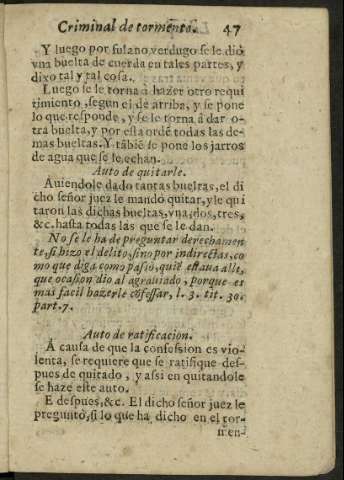 Criminal de tormẽnto. 47
Y luego por fulano verdugo se le dió
vna buelta de cuerda en tales partes, y
dixo tal y tal cosa.
Luego se le torna â hazer otro requi
timiento, segun el de arriba, y se pone
lo que responde, y se le torna â dar o-
tra buelta, y por esta ordẽ todas las de-
mas bueltas. Y tãbiẽ se ponen los jarros
de agua que se le echan.
Auto de quitarle.
Auiendole dado tantas bueltas, el di
cho señor juez le mandó quitar, y le qui
taron las dichas bueltas, vna, dos, tres,
&c. hasta todas las que se le dan.
No se le ha de preguntar derechamen
te, si hizo el delito, sino por indirectas, co
mo que diga como pasió, quiẽ estaua alli,
que ocasion dio al agrauiado, porque es
mas facil hazerle cõfessar, l. 3. tit. 30.
part. 7.
Auto de ratificacion.
A causa de que la confession es vio-
lenta, se requiere que se ratifique des-
pues de quitado, y assi en quitandole
se haze este auto.
E despues, &c. El dicho señor juez le
preguntó, si lo que ha dicho en el tor-
men-